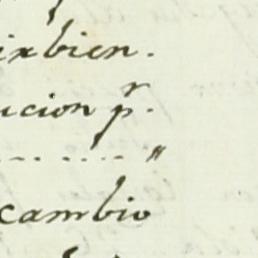 ixbien.
ucion pr.
........ "
cambio